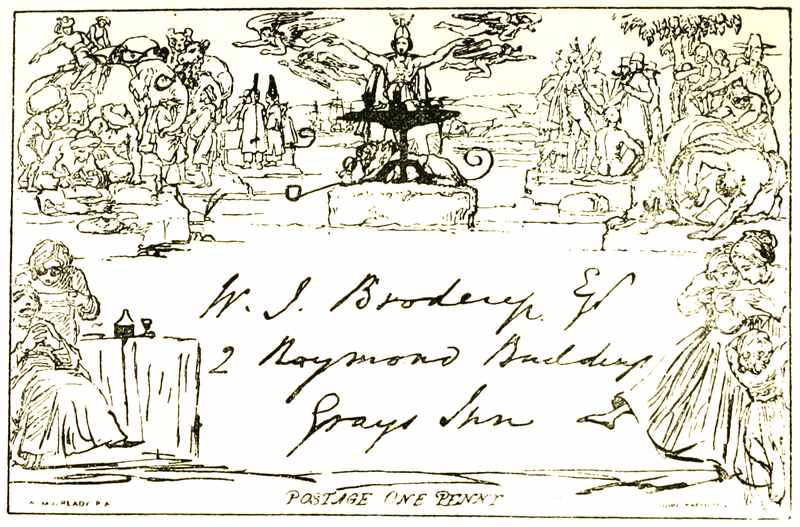 W. J. Broderip Esq
2 Raymond Buildings
Grays Inn
POSTAGE ONE PENNY
W. MULREADY R.A.